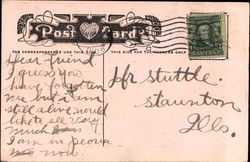 Post Card
THE CORRESPONDENCE USE THIS SIDE
THIS SIDE FOR ADDRESS ONLY
Hear friend
I guess you
have forgotten
me but i am
still alive would
like to see you
very
much
I am in peoria
now.
Mr Stuttle.
Staunton
Ills.